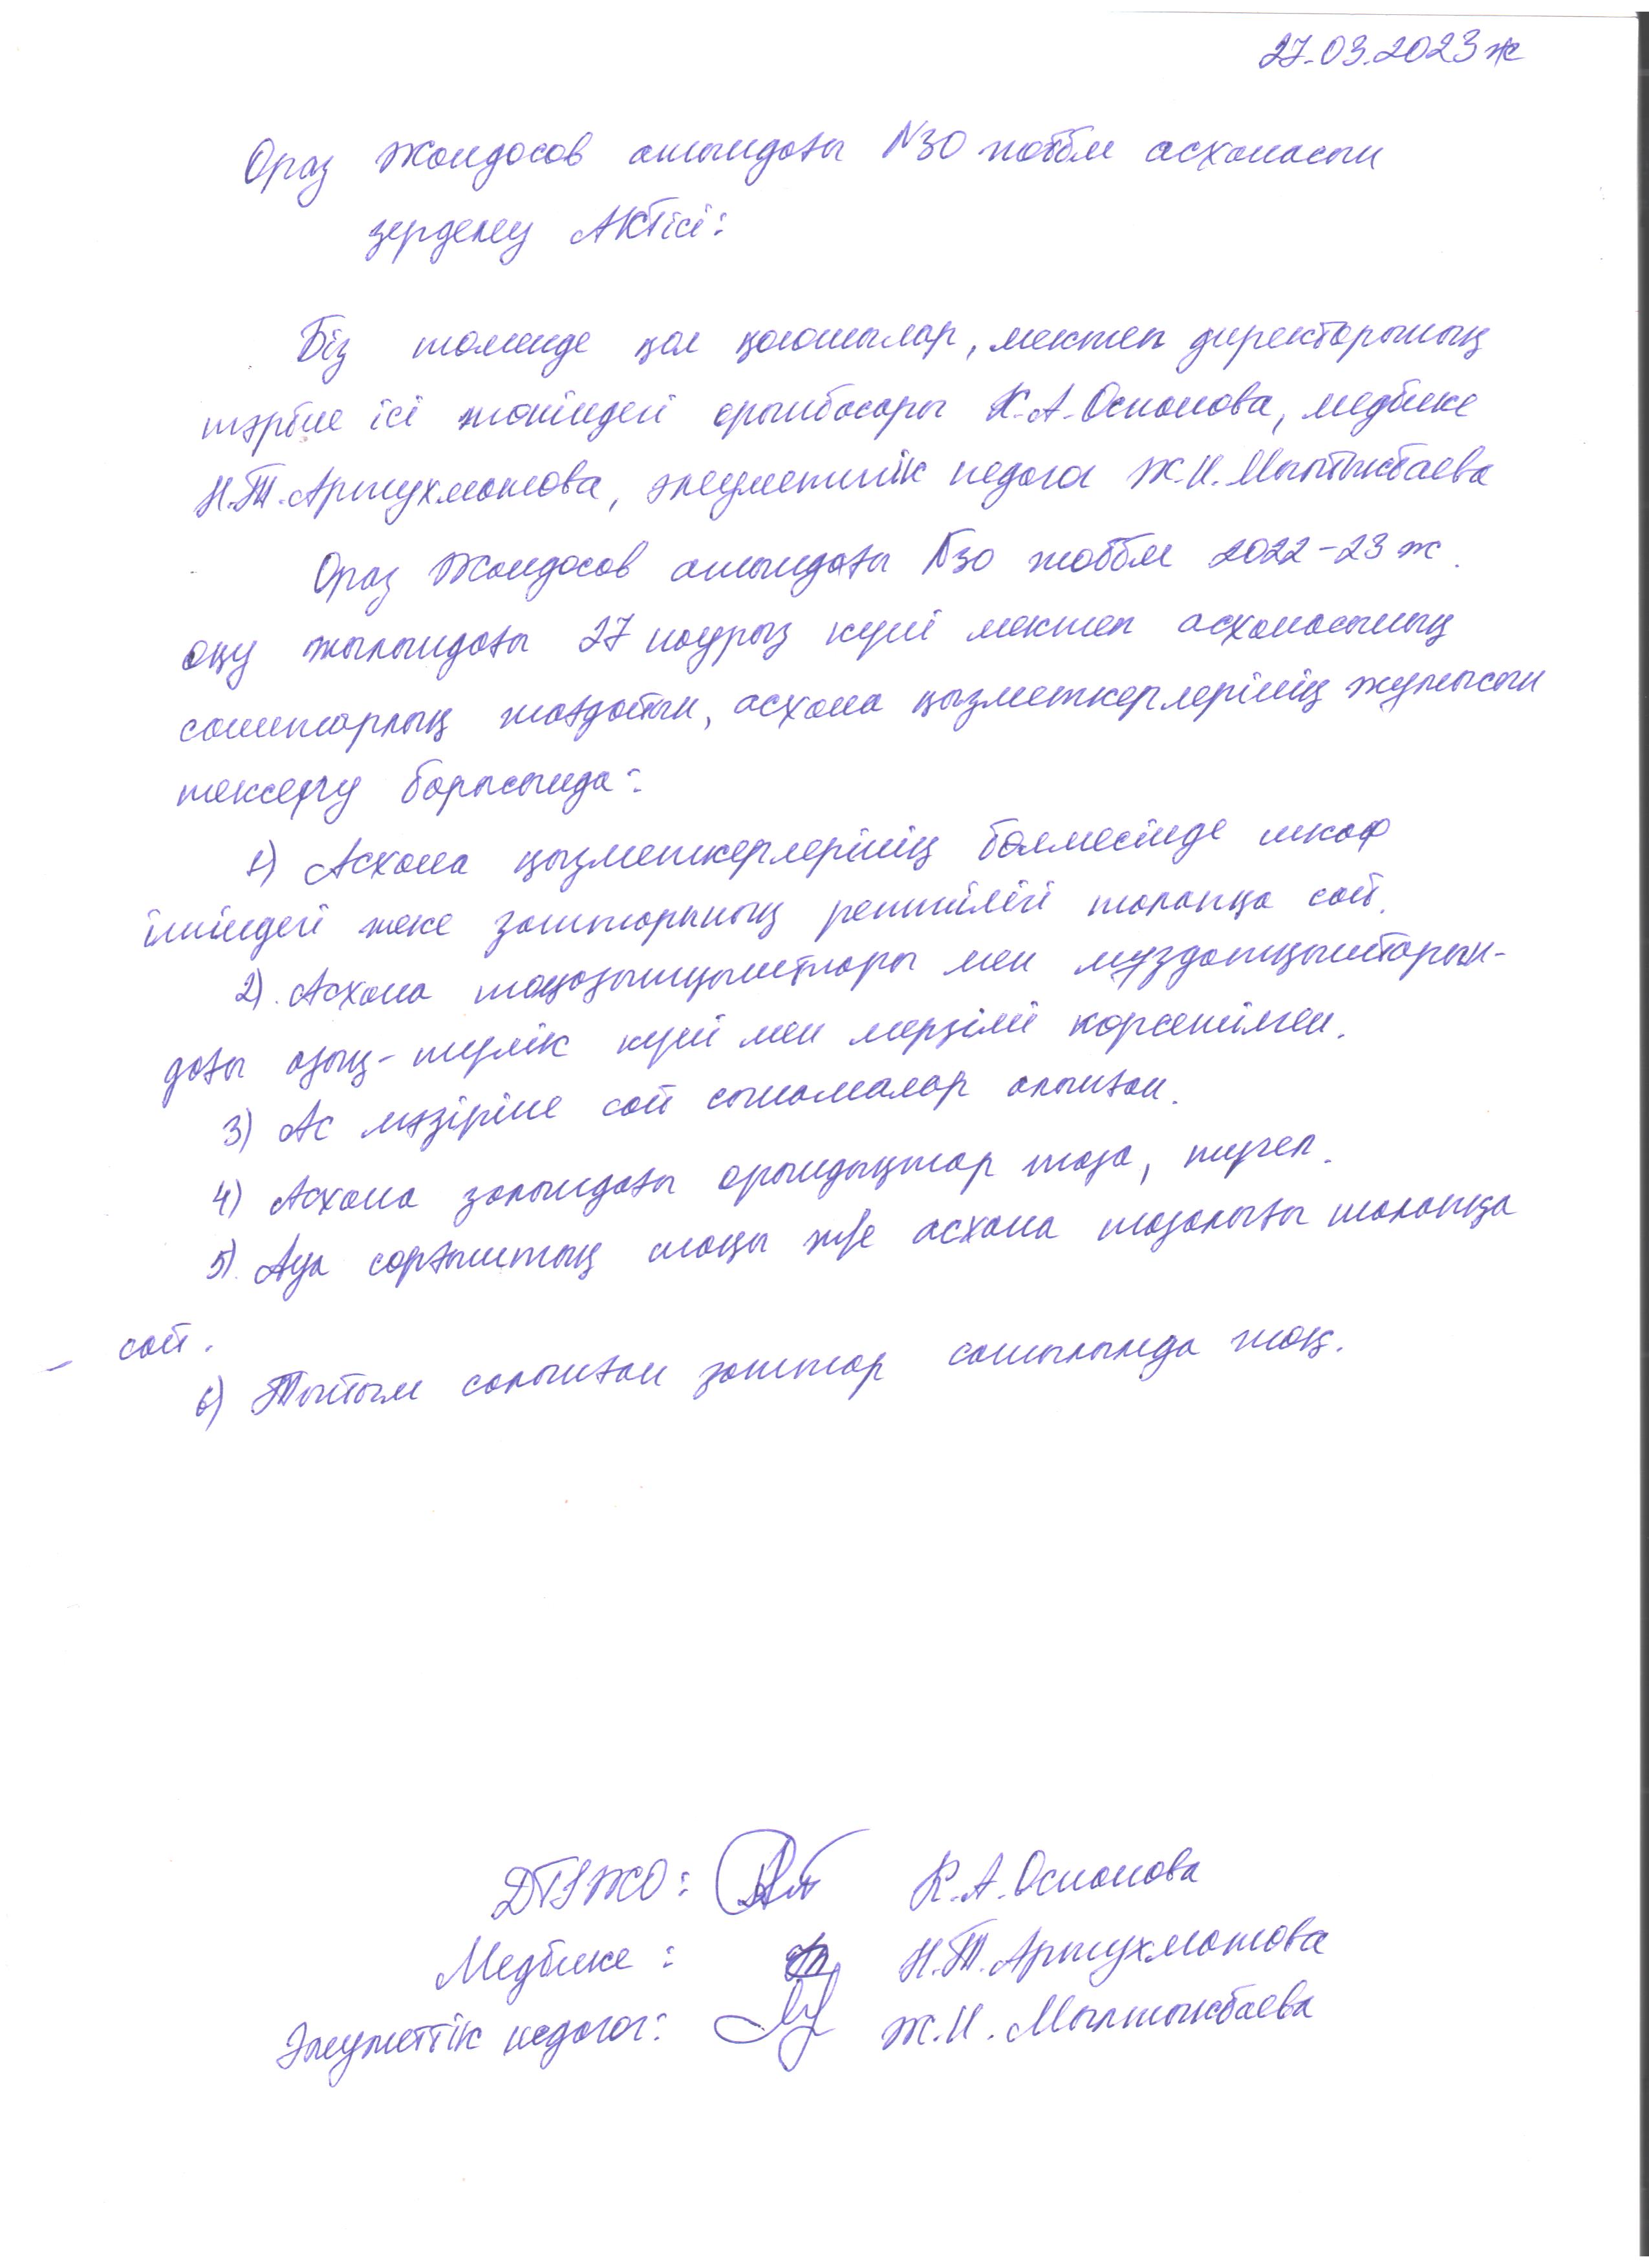 27.03.2023 ж
Ораз Жандосов атындағы №30 жоббм асханасын
зерделеу АКТісі:
Біз төменде қол қоюшылар, мектеп директорының
тәрбие ісі жөніндегі орынбасары К.А.Оспанова, медбике
Н.Т.Артухматова, әлеуметтік педагог Ж.И.Мылтықбаева
Ораз Жандосов атындағы №30 жоббм 2022-23 ж.
оқу жылындағы 27 наурыз күні мектеп асханасының
санитарлық жағдайын, асхана қызметкерлерінің жұмысын
тексеру барысында:
1) Асхана қызметкерлерінің бөлмесінде шкаф
ішіндегі жеке заттарының реттілігі талапқа сай.
2). Асхана тоңазытқыштары мен мұздатқыштарын-
дағы азық-түлік күні мен мерзімі көрсетілген.
3) Ас мәзіріне сай сынамалар алынған.
4) Асхана залындағы орындықтар таза, түгел.
5). Ауа сорғыштың жағы және асхана тазалығы талапқа
сай.
6) Тыйым салынған заттар сатылымда жоқ.
ДТІЖО: К.А.Оспанова
Медбике: Н.Т.Артухматова
Әлеуметтік педагог: Ж.И.Мылтықбаева